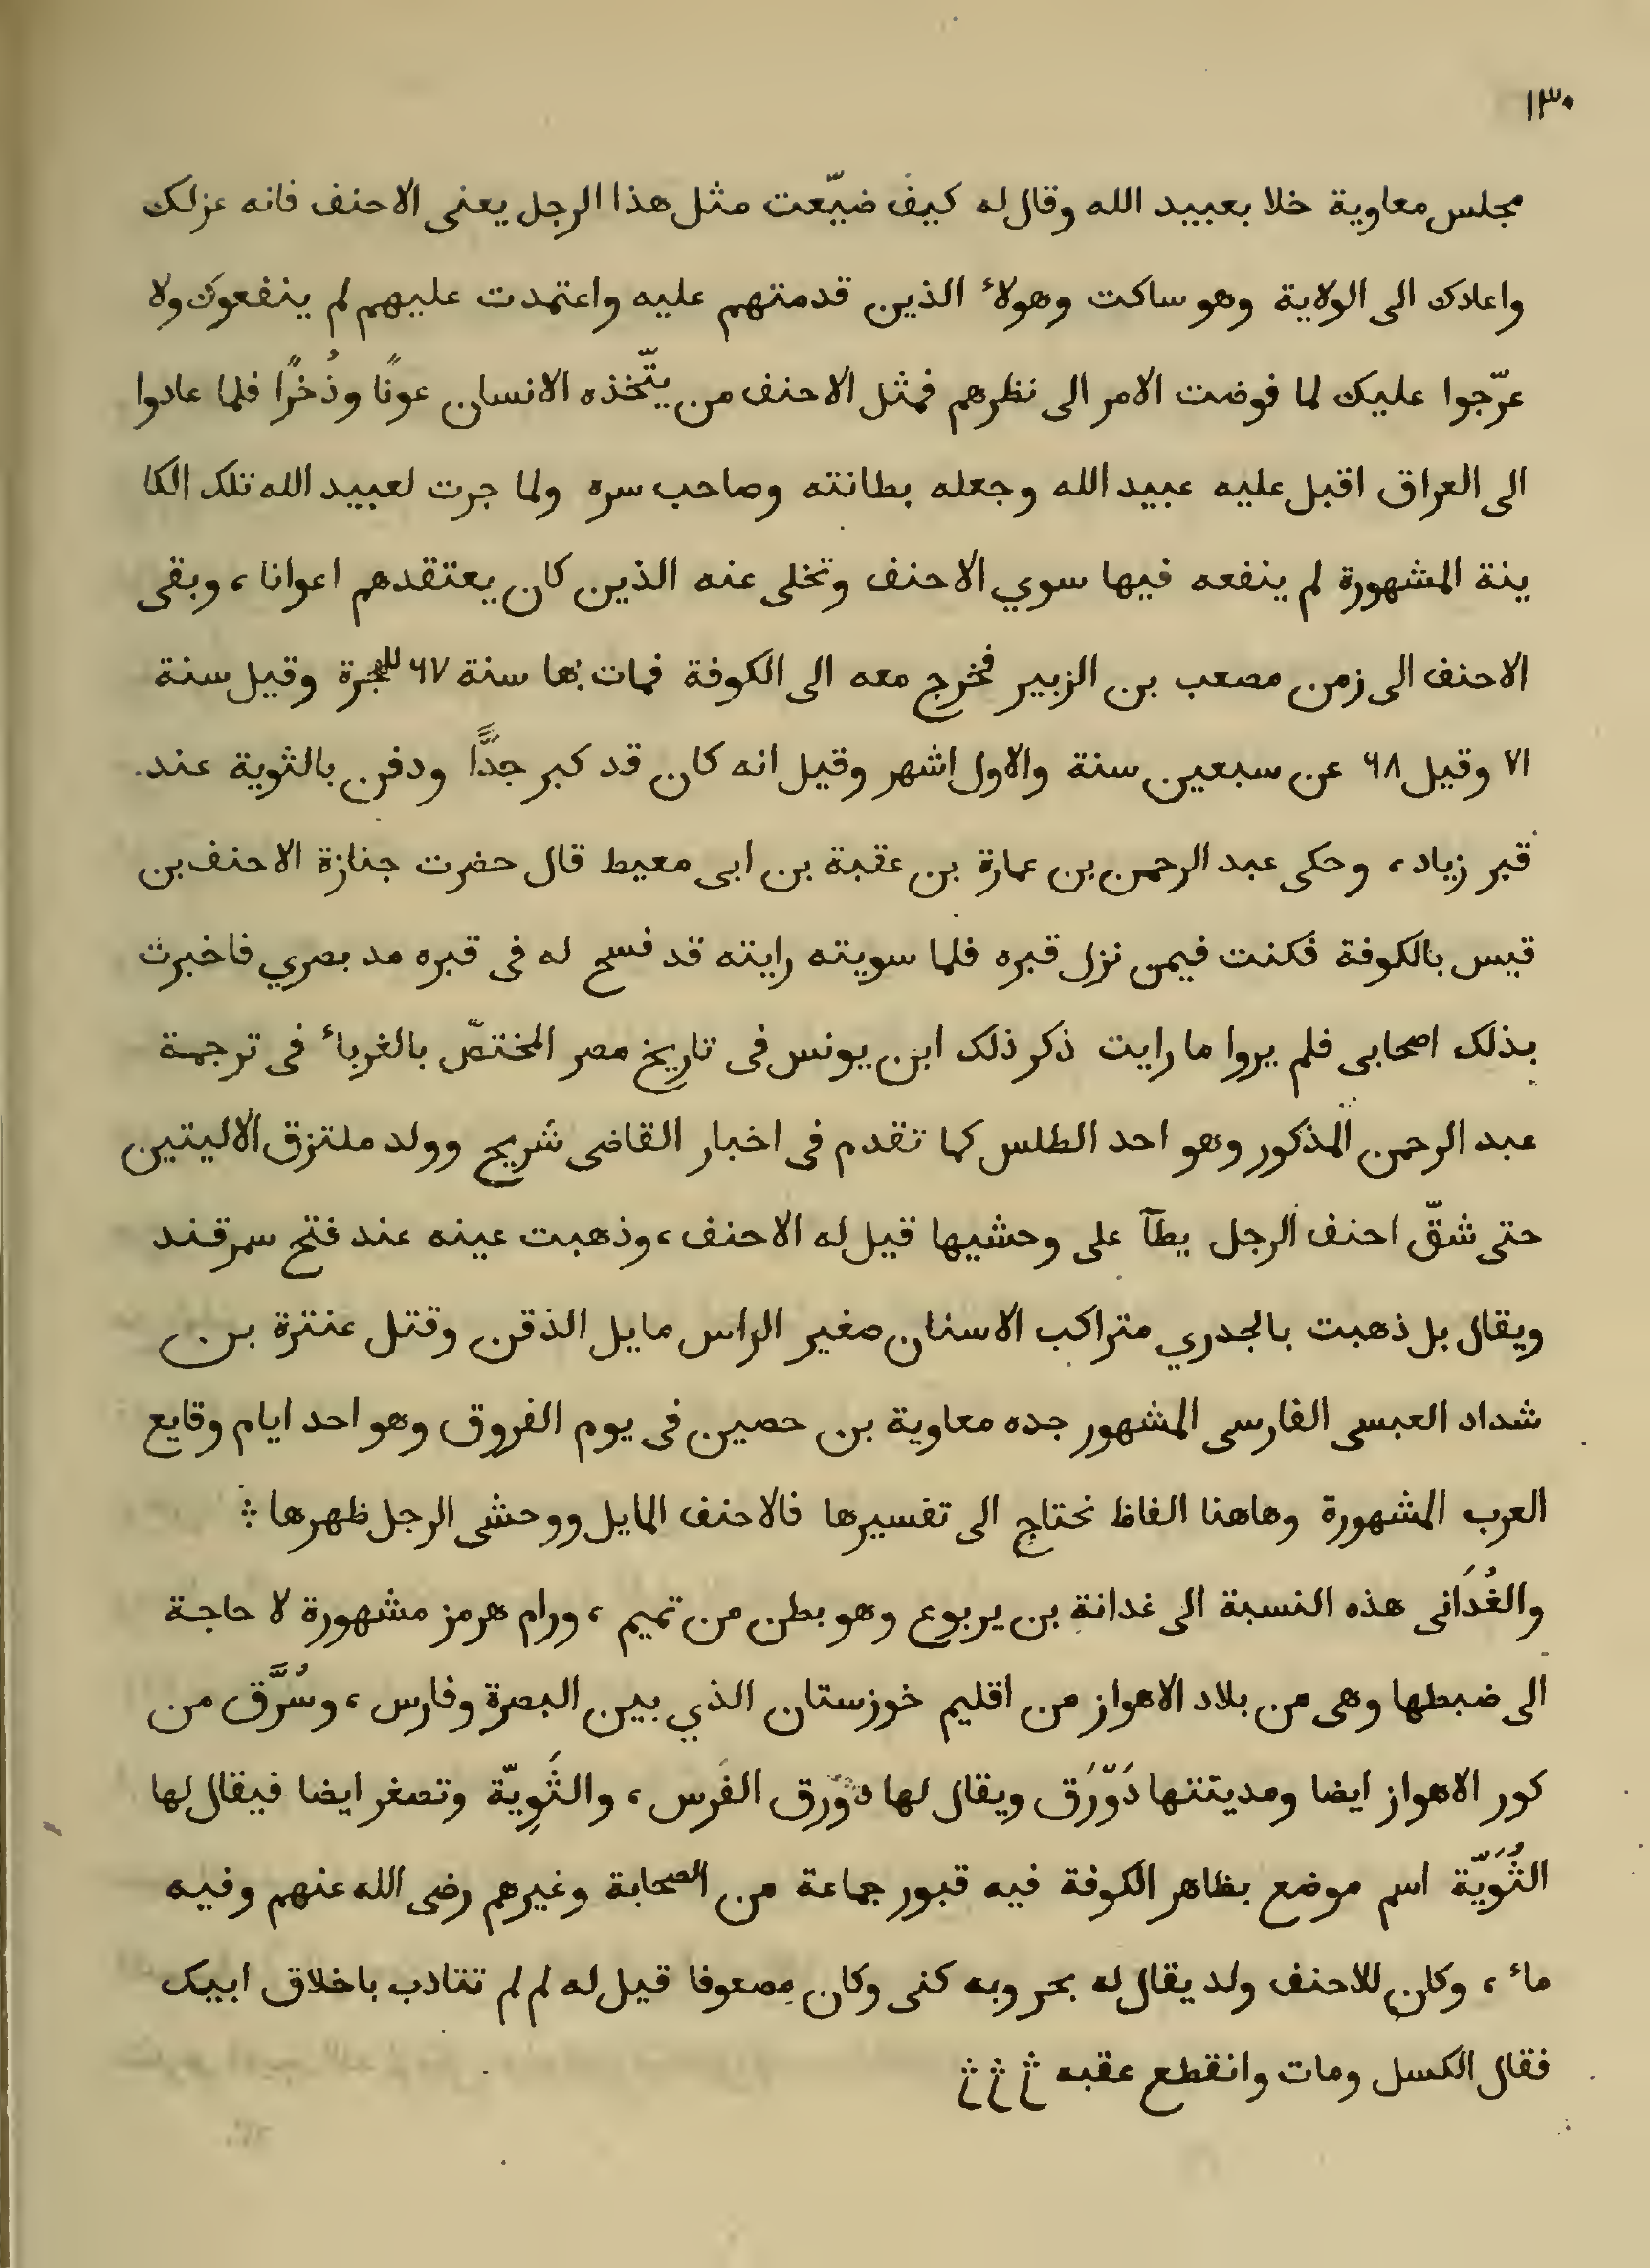 ١٣٠
مجلس معاوية خلا بعبيد الله وقال له كيف ضيّعت مثل هذا الرجل يعنى الاحنف فانه عزلك
واعادك الى الولاية وهو ساكت وهولاء الذين قدمتهم عليه واعتمدت عليهم لم ينفعوك ولا
عرّجوا عليك لما فوضت الامر الى نظرهم فمثل الاحنف من يتّخذه الانسان عونًا وذُخرًا فلما عادوا
الى العراق اقبل عليه عبيد الله وجعله بطانته وصاحب سره ولما جرت لعبيد الله تلك الكا
ينة المشهورة لم ينفعه فيها سوي الاحنف وتخلى عنه الذين كان يعتقدهم اعوانا، وبقى
الاحنف الى زمن مصعب بن الزبير فخرج معه الى الكوفة فمات بها سنة ٦٧ للهجرة وقيل سنة
٧١ وقيل ٦٨ عن سبعين سنة والاول اشهر وقيل انه كان قد كبر جدًّا ودفن بالثوية عند
قبر زياد، وحكى عبد الرحمن بن عمارة بن عقبة بن ابى معيط قال حضرت جنازة الاحنف بن
قيس بالكوفة فكنت فيمن نزل قبره فلما سويته رايته قد فسح له فى قبره مد بصري فاخبرت
بذلك اصحابى فلم يروا ما رايت ذكر ذلك ابن يونس فى تاريخ مصر المختصّ بالغرباء فى ترجمة
عبد الرحمن المذكور وهو احد الطلس كما تقدم فى اخبار القاضى شريح وولد ملتزق الاليتين
حتى شقّ احنف الرجل يطآ على وحشيها قيل له الاحنف، وذهبت عينه عند فتح سمرقند
ويقال بل ذهبت بالجدري متراكب الاسنان صغير الراس مايل الذقن وقتل عنترة بن
شداد العبسى الفارسى المشهور جده معاوية بن حصين فى يوم الفروق وهو احد ايام وقايع
العرب المشهورة وهاهنا الفاظ تحتاج الى تفسيرها فالاحنف المايل ووحشى الرجل ظهرها ؞
والغُدَانى هذه النسبة الى غدانة بن يربوع وهو بطن من تميم، ورام هرمز مشهورة لا حاجة
الى ضبطها وهى من بلاد الاهواز من اقليم خوزستان الذي بين البصرة وفارس، وسُرَّق من
كور الاهواز ايضا ومدينتها دَوْرَق ويقال لها دَوْرَق الفرس، والثَوِيّة وتصغر ايضا فيقال لها
الثُوَيّة اسم موضع بظاهر الكوفة فيه قبور جماعة من الصحابة وغيرهم رضى الله عنهم وفيه
ماء، وكان للاحنف ولد يقال له بحر وبه كنى وكان مصعوفا قيل له لم لم تتادب باخلاق ابيك
فقال الكسل ومات وانقطع عقبه